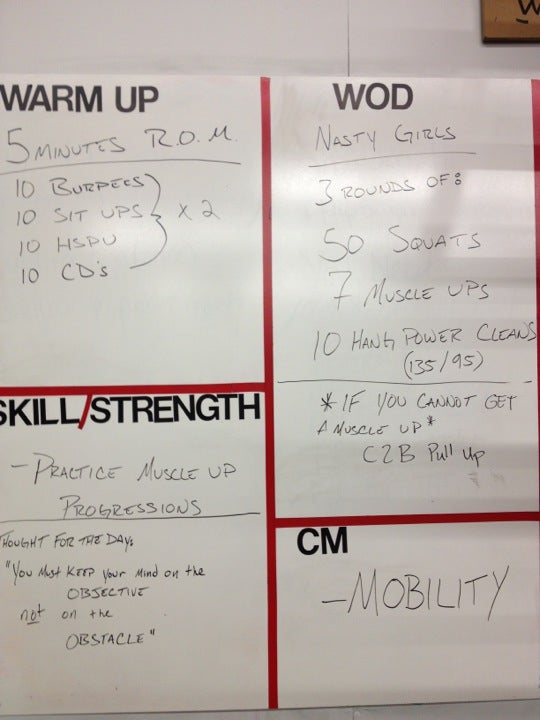 WARM UP
5 MINUTES R.O.M.
10 BURPEES
10 SIT UPS } x 2
10 HSPU
10 CD's
SKILL/STRENGTH
- PRACTICE MUSCLE UP
PROGRESSIONS
THOUGHT FOR THE DAY:
"YOU MUST KEEP YOUR MIND ON the
OBJECTIVE
not on the
OBSTACLE"
WOD
NASTY GIRLS
3 ROUNDS OF:
50 SQUATS
7 MUSCLE UPS
10 HANG POWER CLEANS
(135/95)
* IF YOU CANNOT GET
A MUSCLE UP *
C2B Pull Up
CM
- MOBILITY